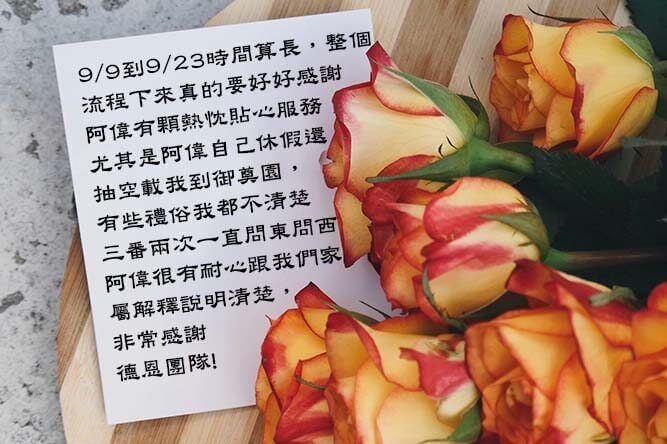 9/9到9/23時間算長，整個
流程下來真的要好好感謝
阿偉有顆熱忱貼心服務
尤其是阿偉自己休假還
抽空載我到御尊園，
有些禮俗我都不清楚
三番兩次一直問東問西
阿偉很有耐心跟我們家
屬解釋說明清楚，
非常感謝
德恩團隊!